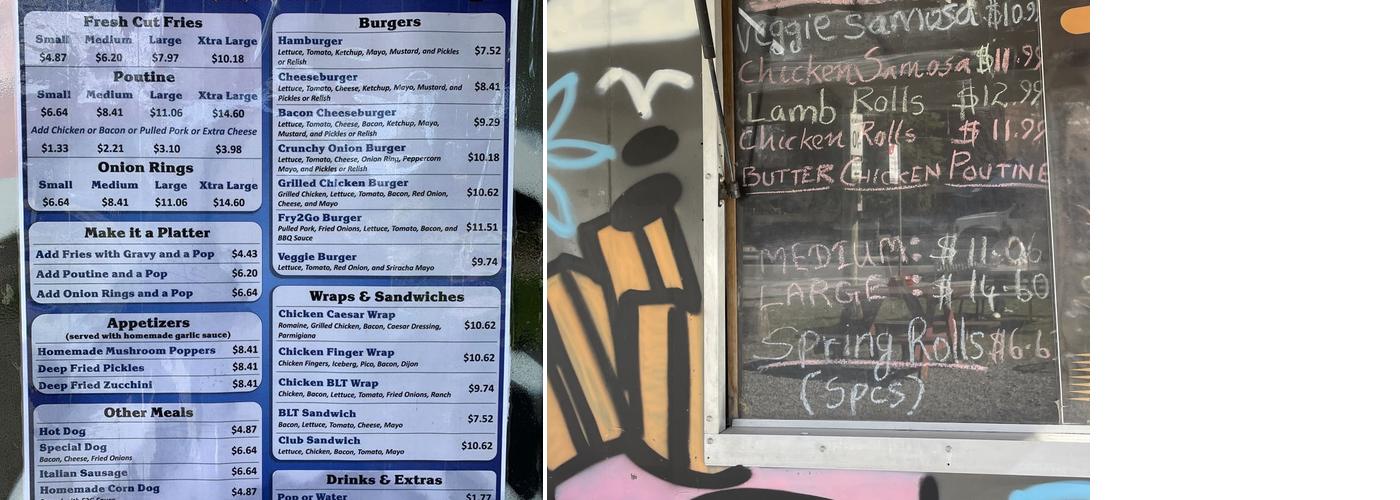 Fresh Cut Fries
Small Medium Large Xtra Large
$4.87 $6.20 $7.97 $10.18
Poutine
Small Medium Large Xtra Large
$6.64 $8.41 $11.06 $14.60
Add Chicken or Bacon or Pulled Pork or Extra Cheese
$1.33 $2.21 $3.10 $3.98
Onion Rings
Small Medium Large Xtra Large
$6.64 $8.41 $11.06 $14.60
Make it a Platter
Add Fries with Gravy and a Pop $4.43
Add Poutine and a Pop $6.20
Add Onion Rings and a Pop $6.64
Appetizers
(served with homemade garlic sauce)
Homemade Mushroom Poppers $8.41
Deep Fried Pickles $8.41
Deep Fried Zucchini $8.41
Other Meals
Hot Dog $4.87
Special Dog $6.64
Bacon, Cheese, Fried Onions
Italian Sausage $6.64
Homemade Corn Dog $4.87
Burgers
Hamburger $7.52
Lettuce, Tomato, Ketchup, Mayo, Mustard, and Pickles
or Relish
Cheeseburger $8.41
Lettuce, Tomato, Cheese, Ketchup, Mayo, Mustard, and
Pickles or Relish
Bacon Cheeseburger $9.29
Lettuce, Tomato, Cheese, Bacon, Ketchup, Mayo,
Mustard, and Pickles or Relish
Crunchy Onion Burger $10.18
Lettuce, Tomato, Cheese, Onion Ring, Peppercorn
Mayo, and Pickles or Relish
Grilled Chicken Burger $10.62
Grilled Chicken, Lettuce, Tomato, Bacon, Red Onion,
Cheese, and Mayo
Fry2Go Burger $11.51
Pulled Pork, Fried Onions, Lettuce, Tomato, Bacon, and
BBQ Sauce
Veggie Burger $9.74
Lettuce, Tomato, Red Onion, and Sriracha Mayo
Wraps & Sandwiches
Chicken Caesar Wrap $10.62
Romaine, Grilled Chicken, Bacon, Caesar Dressing,
Parmigiana
Chicken Finger Wrap $10.62
Chicken Fingers, Iceberg, Pico, Bacon, Dijon
Chicken BLT Wrap $9.74
Chicken, Bacon, Lettuce, Tomato, Fried Onions, Ranch
BLT Sandwich $7.52
Bacon, Lettuce, Tomato, Cheese, Mayo
Club Sandwich $10.62
Lettuce, Chicken, Bacon, Tomato, Mayo
Drinks & Extras
Pop or Water $1.77
Veggie Samosa $10.9
Chicken Samosa $11.99
Lamb Rolls $12.99
Chicken Rolls $11.99
BUTTER CHICKEN POUTINE
MEDIUM: $11.06
LARGE : $14.60
Spring Rolls $6.6
(5pcs)